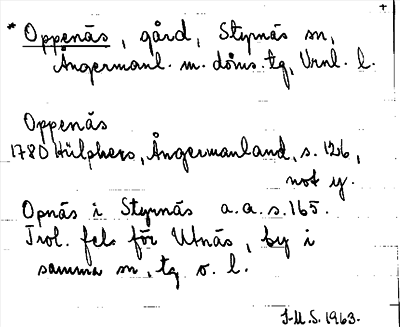 * Oppenäs, gård, Styrnäs sn,
Ångermanl. m. doms. tg, Vrnl. l.
Oppenäs
1780 Hülphers, Ångermanland, s. 126,
not y.
Opnäs i Styrnäs a.a. s. 165.
Trol. fels för Utnäs, by i
samma sn, tg o. l.
J.M.S. 1963.